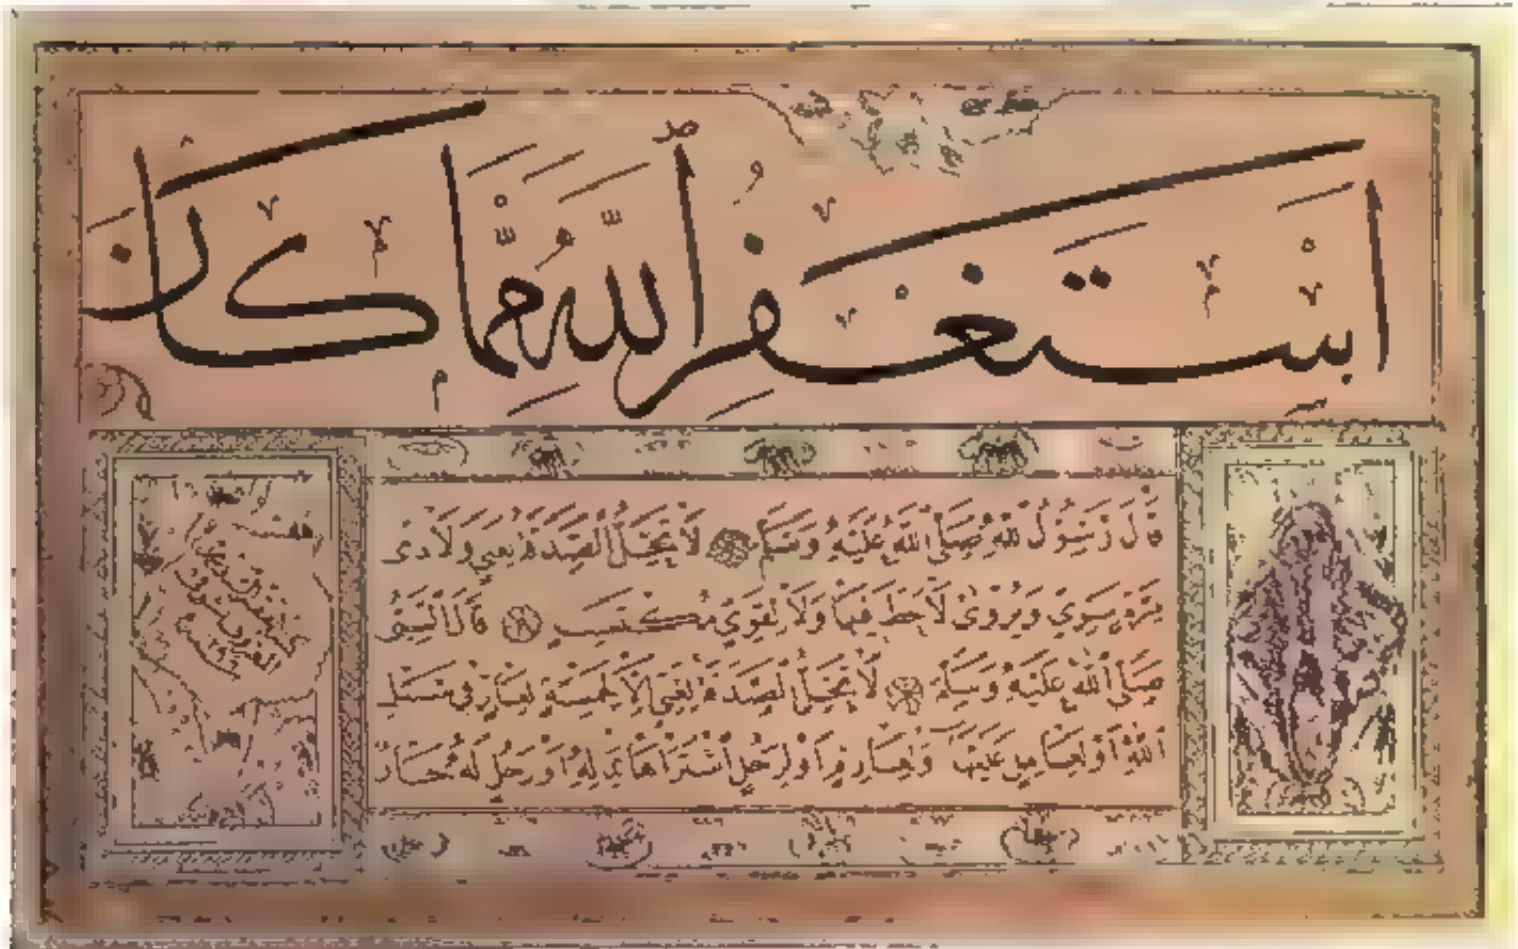 استغفر الله مما كان
قال رسول الله صلى الله عليه وسلم لا تحل الصدقة لغني ولا لذي
مرة سوي ويروى لا حظ فيها ولا لقوي مكتسب قال النبي
صلى الله عليه وسلم لا تحل الصدقة لغني الا لخمسة لغاز في سبيل
الله او لعامل عليها ولغارم او لرجل اشتراها بماله او رجل له جار